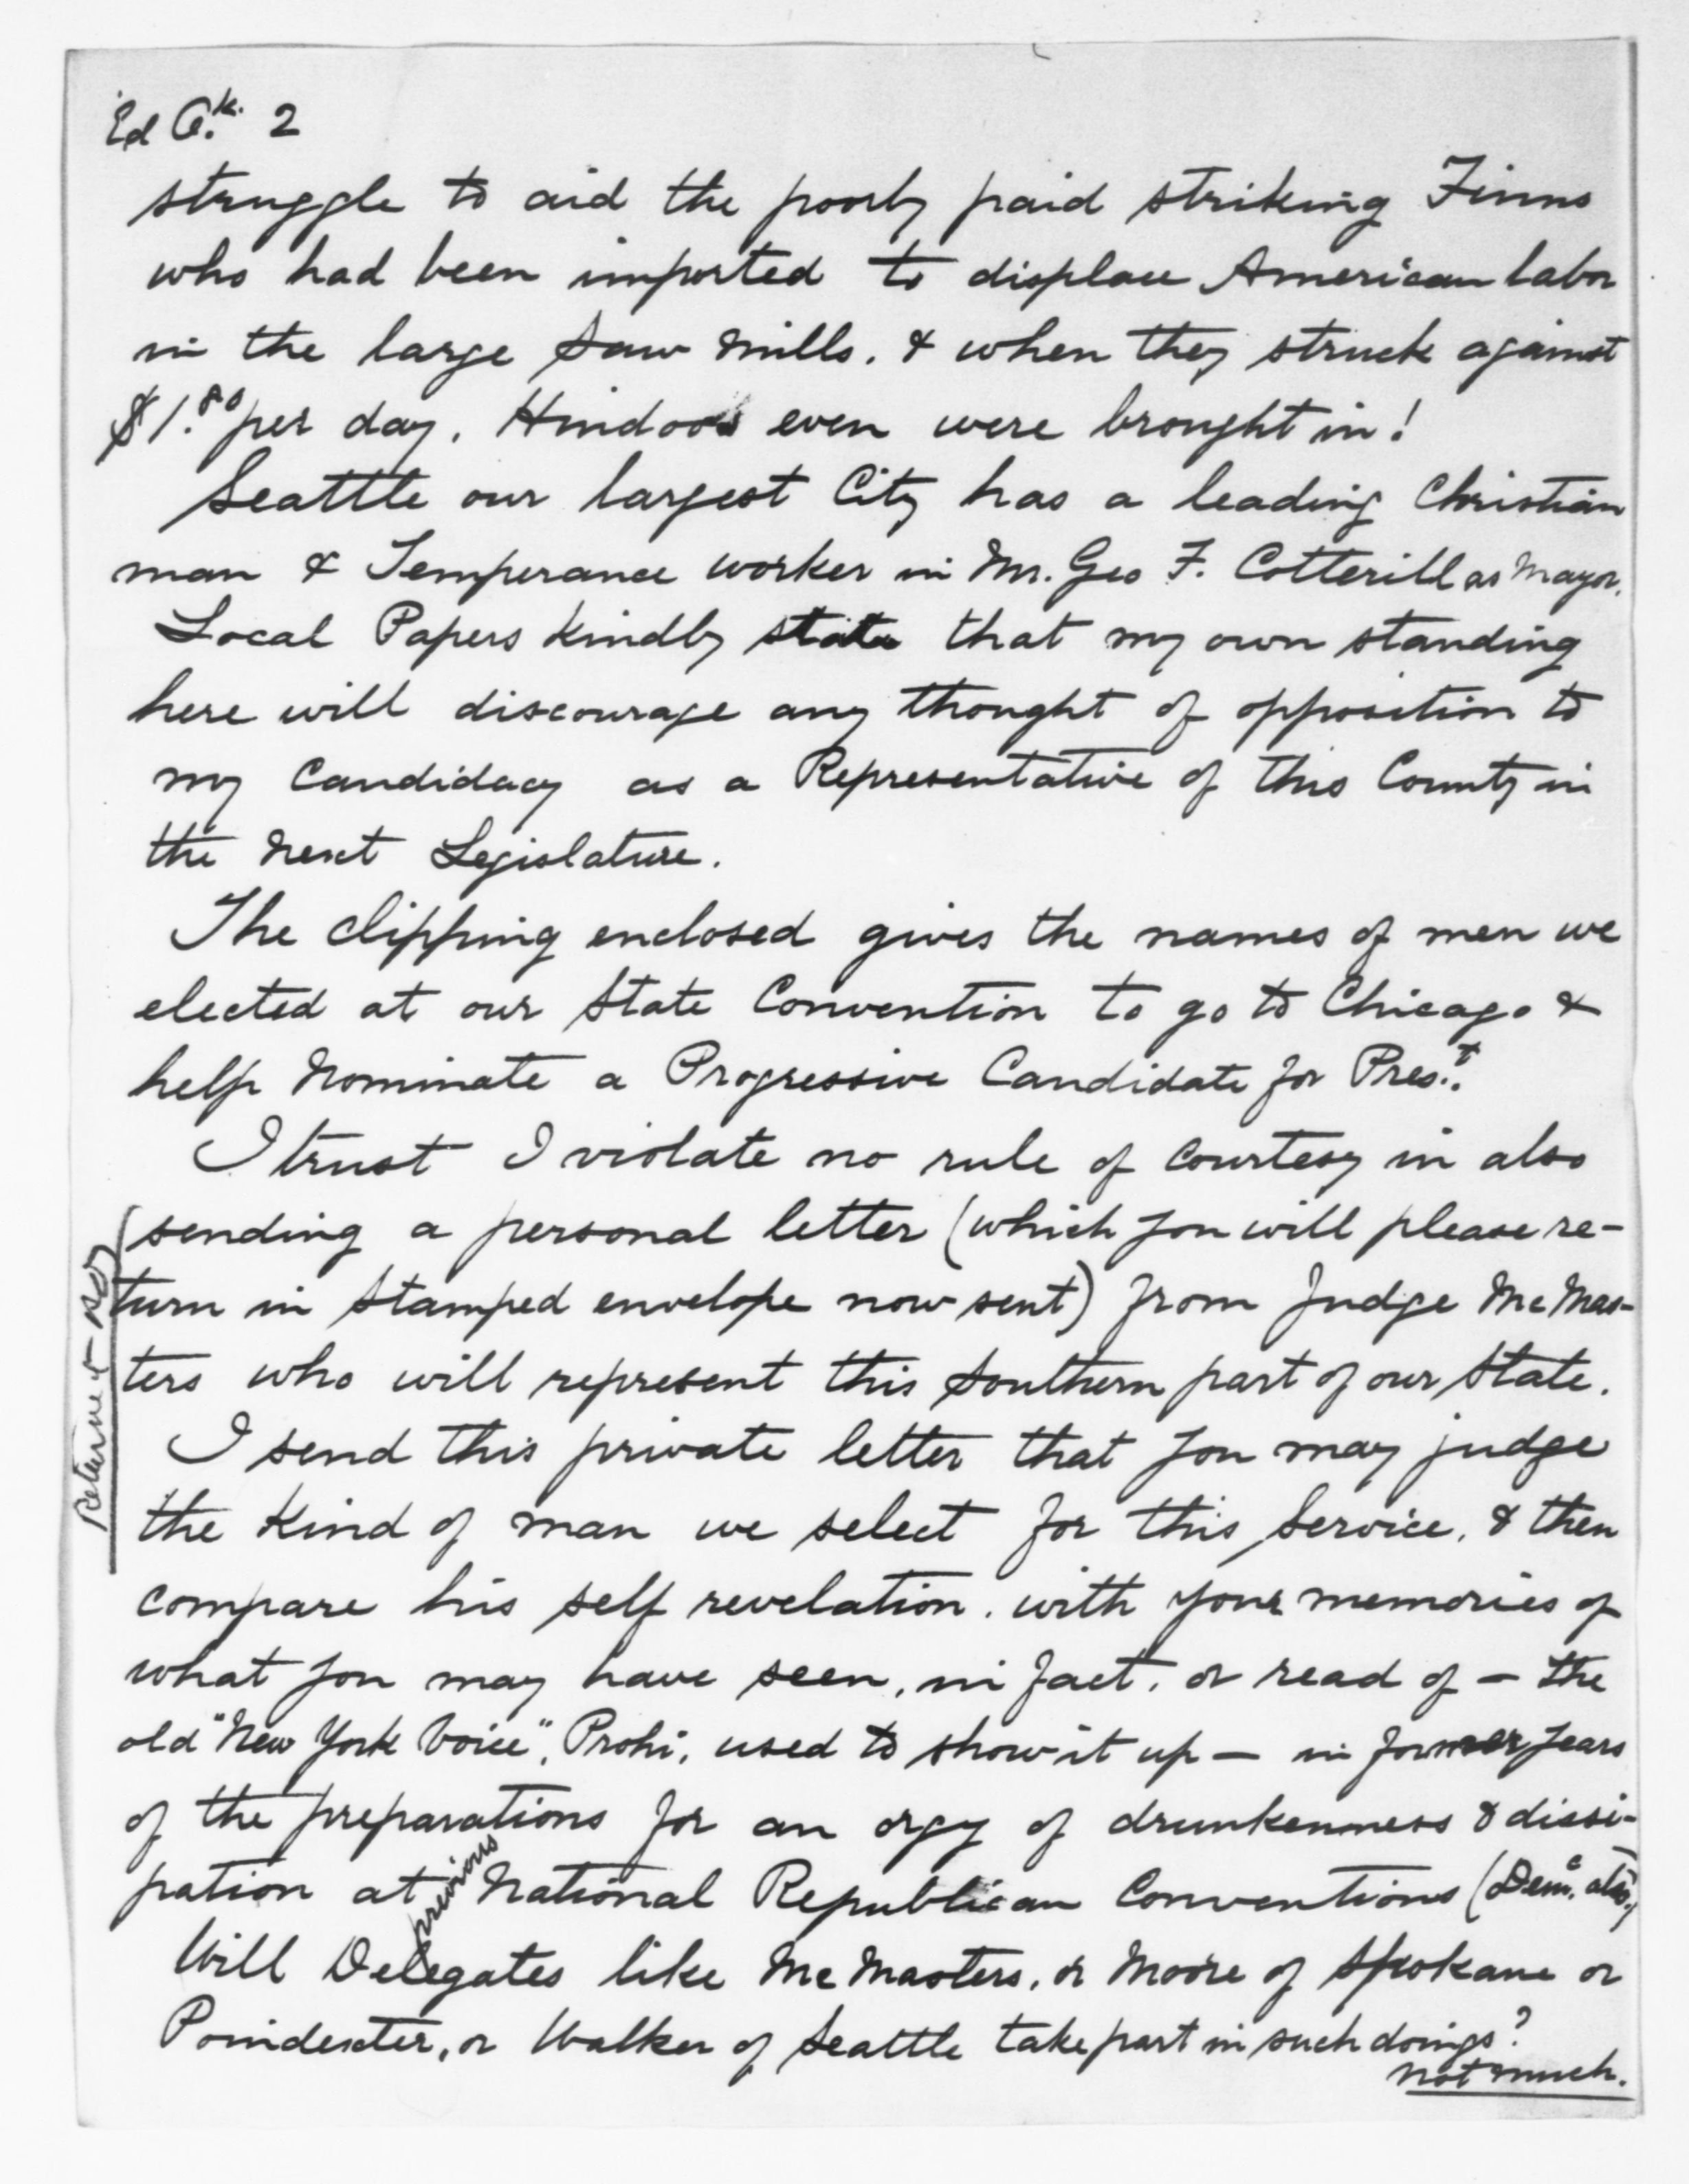 Ed O.k. 2
struggle to aid the poorly paid striking Finns
who had been imported to displace American labor
in the large Saw Mills. & when they struck against
$1.80 per day. Hindoos even were brought in!
Seattle our largest City has a leading Christian
man & Temperance worker in Mr. Geo F. Cotterill as Mayor.
Local Papers kindly state that my own standing
here will discourage any thought of opposition to
my Candidacy as a Representative of this County in
the next Legislature.
The clipping enclosed gives the names of men we
elected at our State Convention to go to Chicago &
help Nominate a Progressive Candidate for Prest.
I trust I violate no rule of courtesy in also
sending a personal letter (which you will please re-
turn in Stamped envelope now sent) from Judge McMas-
ters who will represent this Southern part of our State.
I send this private letter that you may judge
the kind of man we select for this Service, & then
compare his self revelation. with your memories of
what you may have seen, in fact, or read of — the
old "New York Voice", Prohi, used to show it up — in former years
of the preparations for an orgy of drunkenness & dissi-
pation at previous National Republican Conventions (Dem. also.)
Will Delegates like McMasters, or Moore of Spokane or
Poindexter, or Walker of Seattle take part in such doings?
not much.
Returned